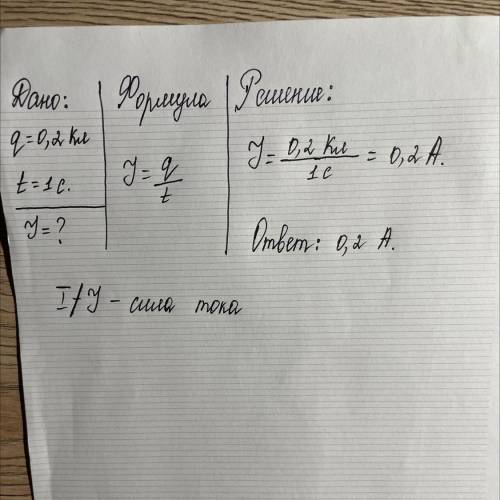 Дано:
q=0,2 Кл
t=1с.
J=?
Формула
J=q/t
Решение:
J=0,2 Кл/1с = 0,2 А.
Ответ: 0,2 А.
I/J - сила тока